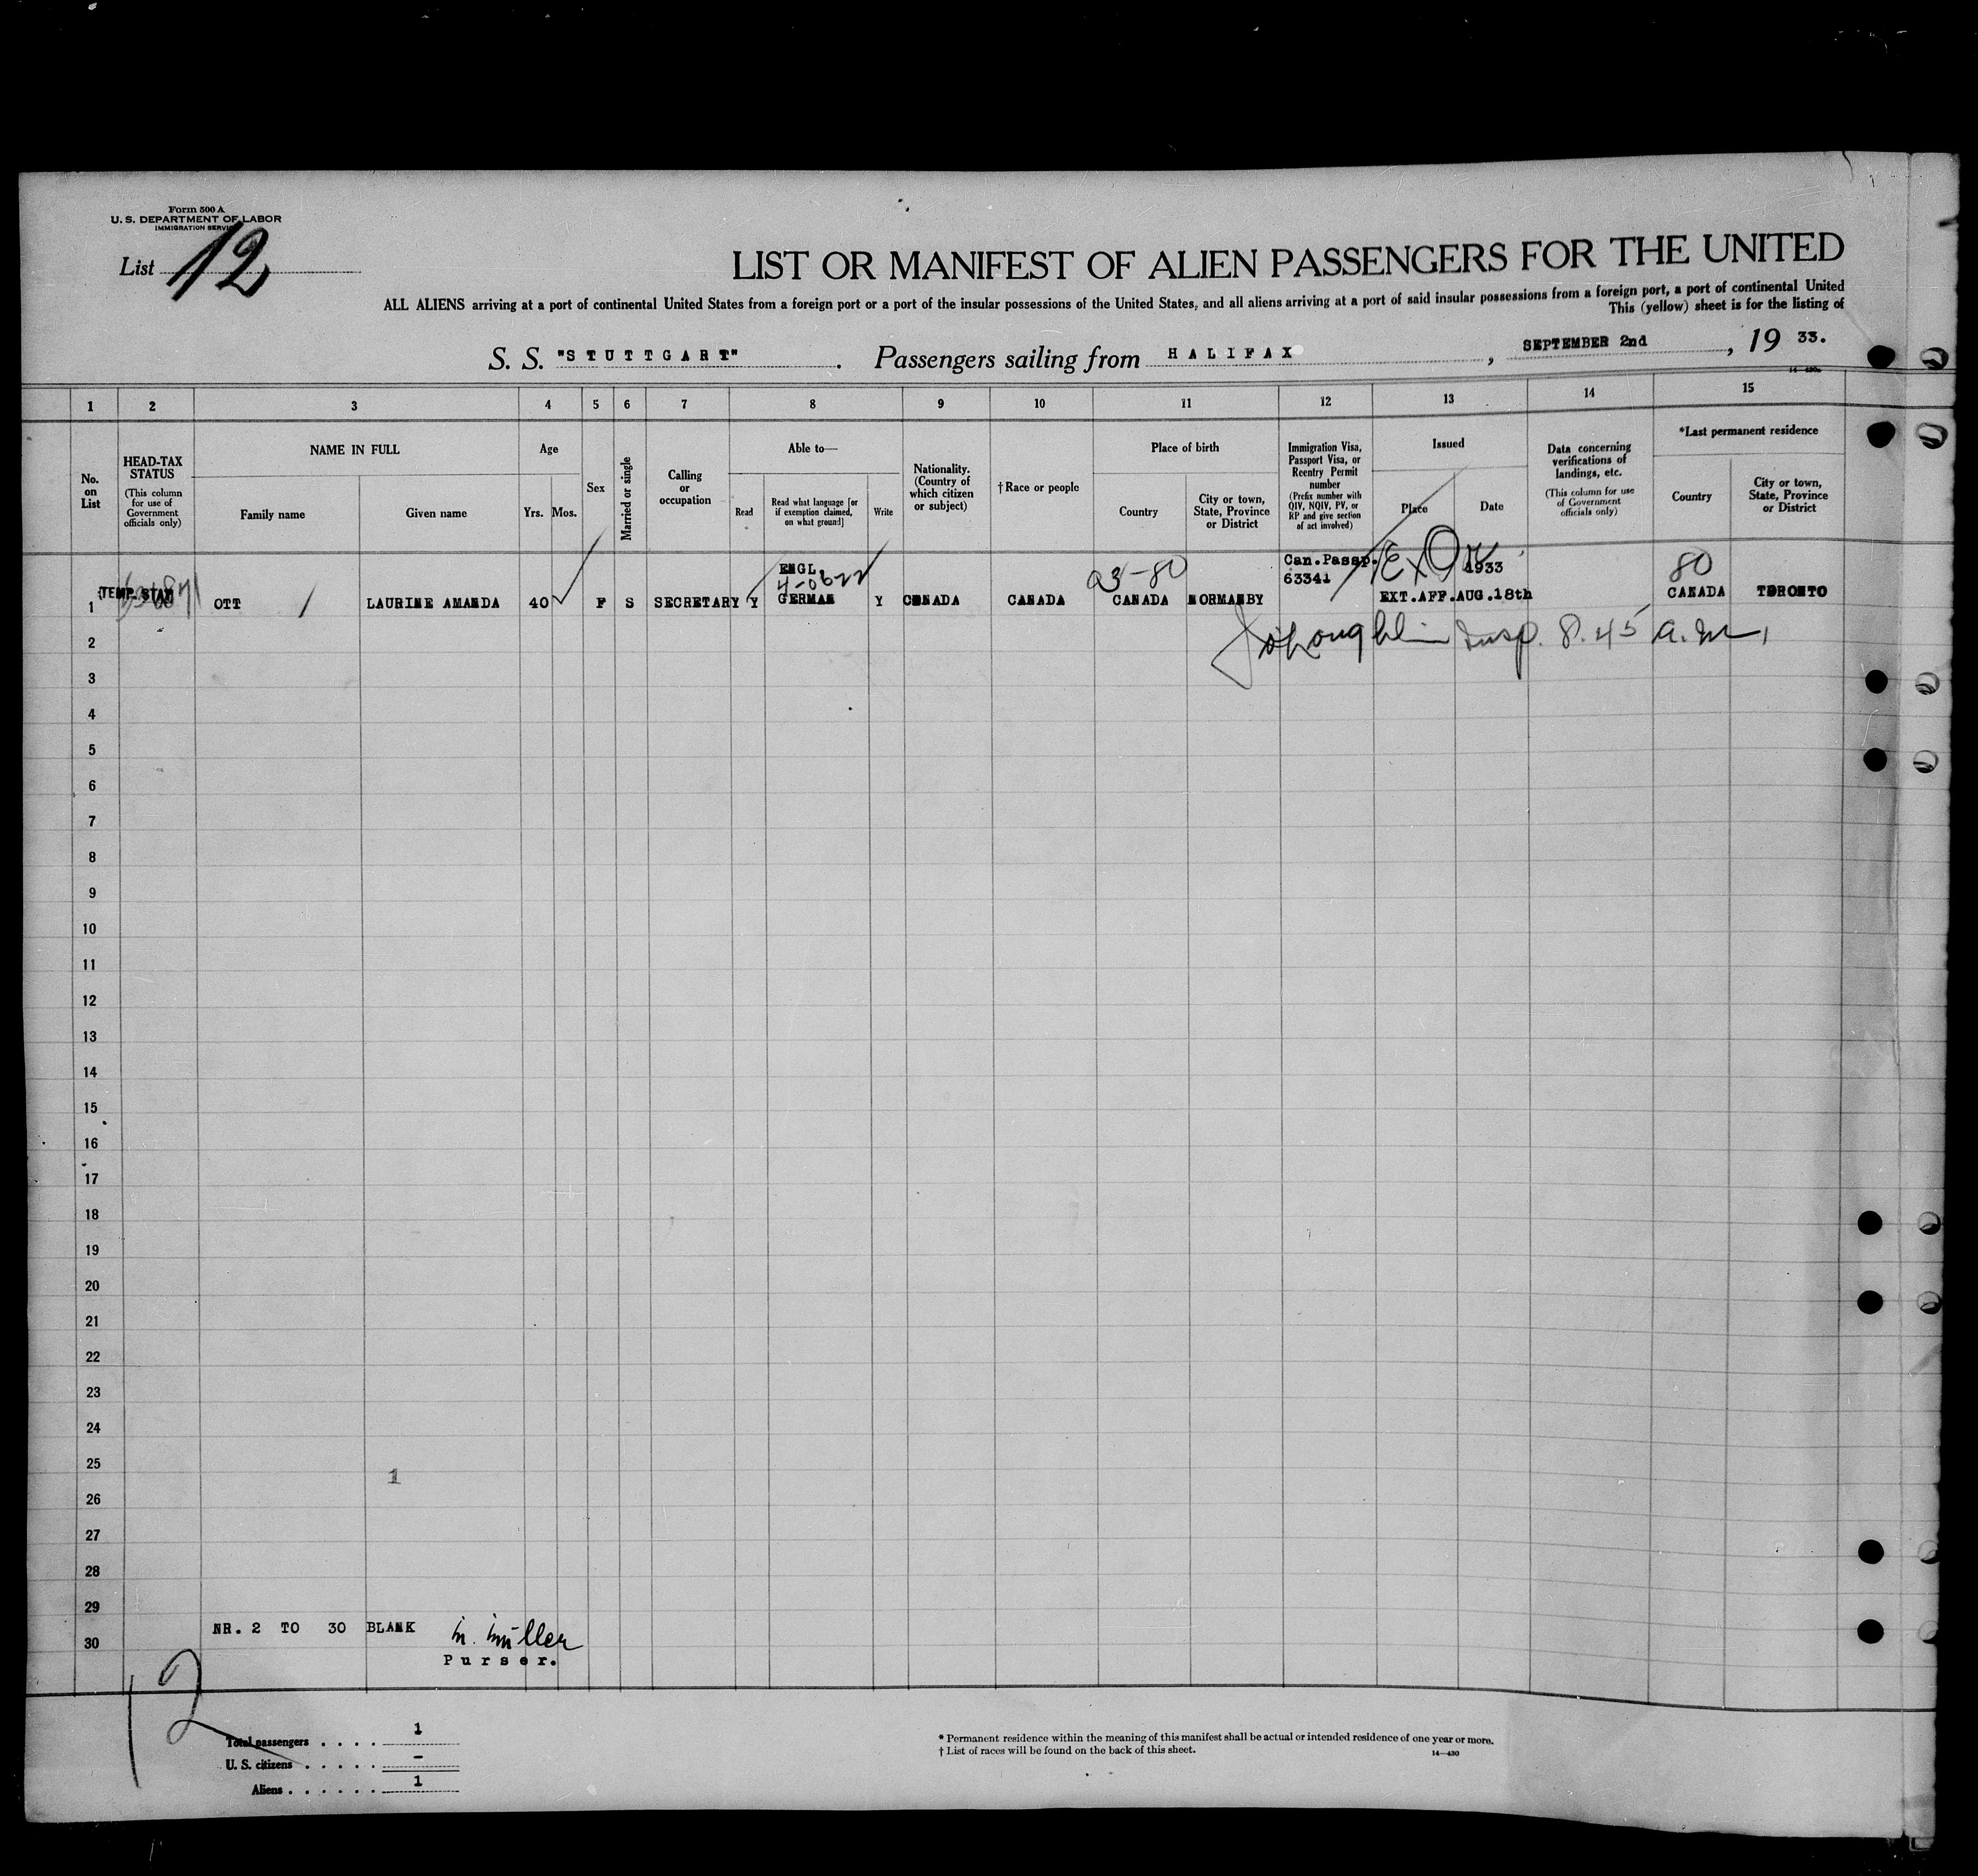 Form 500 A
U. S. DEPARTMENT OF LABOR
IMMIGRATION SERVICE
List 12
LIST OR MANIFEST OF ALIEN PASSENGERS FOR THE UNITED
ALL ALIENS arriving at a port of continental United States from a foreign port or a port of the insular possessions of the United States, and all aliens arriving at a port of said insular possessions from a foreign port, a port of continental United
This (yellow) sheet is for the listing of
S. S. "STUTTGART" . Passengers sailing from HALIFAX , SEPTEMBER 2nd , 19 33.
14—430a
1 2 3 4 5 6 7 8 9 10 11 12 13 14 15
No. on List
HEAD-TAX STATUS
(This column for use of Government officials only)
NAME IN FULL
Family name
Given name
Age
Yrs. Mos.
Sex
Married or single
Calling or occupation
Able to—
Read
Read what language [or if exemption claimed, on what ground]
Write
Nationality. (Country of which citizen or subject)
†Race or people
Place of birth
Country
City or town, State, Province or District
Immigration Visa, Passport Visa, or Reentry Permit number
(Prefix number with QIV, NQIV, PV, or RP and give section of act involved)
Issued
Place
Date
Data concerning verifications of landings, etc.
(This column for use of Government officials only)
*Last permanent residence
Country
City or town, State, Province or District
ENGL. Can.Passp. 1933
4-0622 23-80 63341 80
1 TEMP. STAY OTT LAURINE AMANDA 40 F S SECRETARY Y GERMAN Y CANADA CANADA CANADA NORMANBY EXT.AFF.AUG.18th CANADA TORONTO
2 Insp. 8.45 a.m.
3
4
5
6
7
8
9
10
11
12
13
14
15
16
17
18
19
20
21
22
23
24
25 1
26
27
28
29
NR. 2 TO 30 BLANK M. Müller
30
Purser.
12
Total passengers . . . . 1
U. S. citizens . . . . . –
Aliens . . . . . . 1
* Permanent residence within the meaning of this manifest shall be actual or intended residence of one year or more.
† List of races will be found on the back of this sheet. 14—430